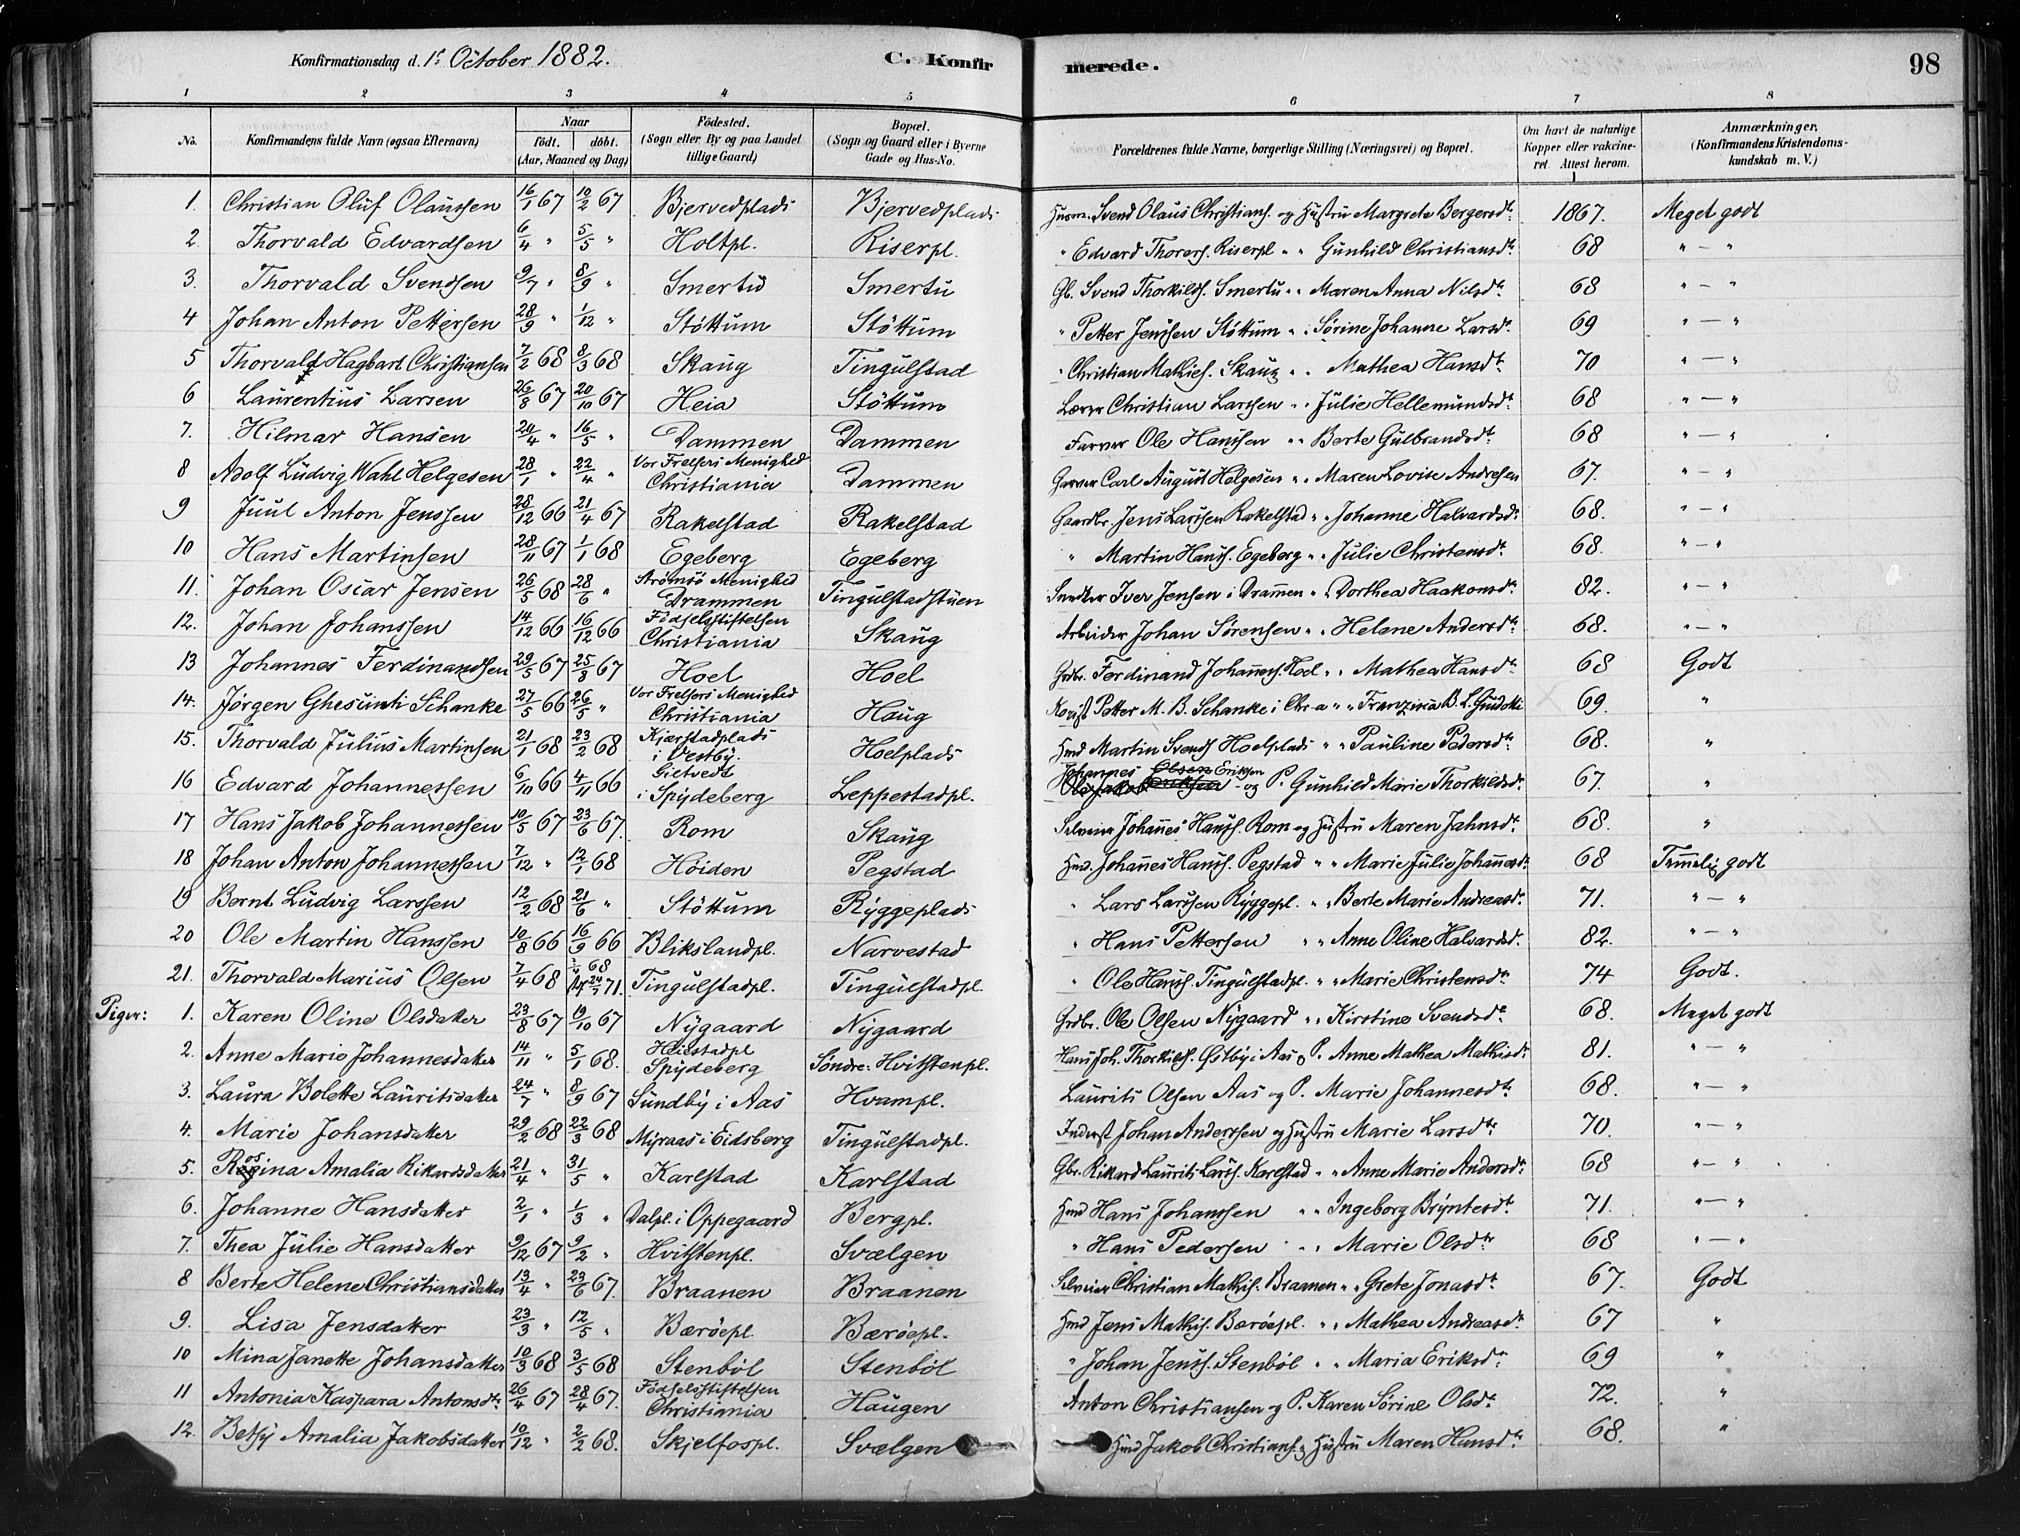 Konfirmationsdag d. 1ste October 1882.
C. Konfirmerede.
98
1 2 3 4 5 6 7 8
No. Konfirmandens fulde Navn (ogsaa Efternavn) Naar født. døbt. (Aar, Maaned og Dag) Födested. (Sogn eller By og paa Landet tillige Gaard) Bopæl. (Sogn og Gaard eller i Byerne Gade og Hus-No. Forældrenes fulde Navne, borgerlige Stilling (Næringsvei) og Bopæl. Om havt de naturlige Kopper eller vakcineret. Attest herom. Anmærkninger. (Konfirmandens Kristendomskundskab m. V.)
1. Christian Oluf Olaussen 16/1 67 10/2 67 Bjervedplads Bjervedplads Husm. Svend Olaus Christians. og Hustru Margrete Bergersdtr. 1867. Meget godt
2. Thorvald Edvardsen 6/4 " 5/5 " Holtpl. Riserpl. " Edvard Thorers. Riserpl " " Gunhild Christiansdtr. 68 " — "
3. Thorvald Svendsen 9/7 " 8/9 " Smertu Smertu Gb. Svend Thorkilds. Smertu " " Maren Anna Nilsdtr. 68 " — "
4 Johan Anton Pettersen 28/9 " 1/12 " Støttum Støttum " Petter Jenssen Støttum " " Sørine Johanne Larsdtr. 69 " — "
5 Thorvald Hagbart Christiansen 7/2 68 8/3 68 Skaug Tingulstad " Christian Mathies. Skaug " " Mathea Hansdtr. 70 " — "
6 Laurentius Larsen 26/8 67 20/10 67 Heia Støttum Lærer Christian Larssen " " Julie Hellemundsdtr. 68 " — "
7. Hilmar Hansen 24/4 " 16/5 " Dammen Dammen Farver Ole Hanssen " " Berte Gulbrandsdtr. 68 " — "
8 Adolf Ludvig Wahl Helgesen 28/1 " 22/4 " Vor Frelsers Menighed Christiania Dammen Garver Carl August Helgesen " " Maren Lovise Andresen 67. " — "
9 Juul Anton Jenssen 28/12 66 21/4 67 Rakelstad Rakelstad Gaardbr. Jens Larssen Rakelstad " " Johanne Halvardsdtr. 68. " — "
10 Hans Martinsen 28/11 67 1/1 68 Egeberg Egeberg " Martin Hanss. Egeberg " " Julie Christensdtr. 68. " — "
11. Johan Oscar Jensen 26/5 68 28/6 " Strømsø Menighed Drammen Tingulstadstuen Snedker Iver Jensen i Drammen " " Dorthea Haakonsdtr. 82. " — "
12. Johan Johanssen 14/12 66 16/12 66 Fødselsstiftelsen Christiania Skaug Arbeider Johan Sørensen " " Helene Andersdtr. 68. " — "
13 Johannes Ferdinandsen 29/5 67 25/8 67 Hoel Hoel Grdbr. Ferdinand Johanness. Hoel " " Mathea Hansdtr. 68 Godt
14. Jørgen Ghesunti Schanke 27/5 66 26/5 " Vor Frelsers Menighed Christiania Haug Petter M. B. Schanke i Chr-a " " Franzisca B. L. Guidotti 69. "
15. Thorvald Julius Martinsen 21/1 68 23/2 68 Kjærstadplads i Vestby. Hoelplads Hmd Martin Svends Hoelplads " " Pauline Pedersdtr. 68. "
16 Edvard Johannessen 6/10 66 4/11 66 Gietvedt i Spydeberg Leppestadpl. Johannes Olsen Eriksen Ole Jakob Eriksen og P. Gunhild Marie Thorkildsdtr. 67. "
17 Hans Jakob Johannessen 10/5 67 23/6 67. Rom Skaug Selveier Johannes Hanss. Rom og Hustru Maren Jahnsdtr. 68. "
18 Johan Anton Johannessen 7/12 " 12/1 68 Høiden Pegstad Hmd. Johannes Hanss. Pegstad " " Marie Julie Johannesdtr. 68 Temmelig godt
19 Bernt Ludvig Larssen 12/2 68 21/6 " Støttum Ryggeplads " Lars Larssen Ryggepl. " " Berte Marie Andreasdtr. 71. " — "
20 Ole Martin Hanssen 10/8 66 16/9 66 Blikslandpl. Narvestad " Hans Pettersen " " Anne Oline Halvardsd. 82. " — "
21. Thorvald Marius Olsen 7/4 68 68 71. Tingulstadpl. Tingulstadpl. " Ole Hanss. Tingulstadpl. " " Marie Christensdtr. 74 Godt.
Piger: 1. Karen Oline Olsdatter 23/8 67 19/10 67 Nygaard Nygaard Grdbr. Ole Olsen Nygaard " " Kirstine Svendsdtr. 68. Meget godt
2. Anne Marie Johannesdatter 14/11 " 5/1 68. Heiestadpl Spydeberg Søndre Hvitstenpl. Hans Joh. Thorkilds. Østby i Aas og P. Anne Mathea Mathisdtr. 81. " — "
3. Laura Bolette Lauritsdatter 24/7 " 8/9 67 Sundby i Aas Hvampl. Laurits Olsen Aas og P. Marie Johannesdtr. 68. " — "
4. Marie Johansdatter 29/2 68 22/3 68 Myraas i Eidsberg Tingulstadpl. Inderst Johan Anderssen og Hustru Marie Larsdtr. 70. " — "
5. Rosina Amalia Rikardsdatter 21/4 " 31/5 " Karlstad Karlstad Gbr. Rikard Laurits Larss. Karlstad " " Anne Marie Andersdtr. 68 " — "
6. Johanne Hansdatter 2/1 " 1/3 " Dalpl. i Oppegaard Bergpl. Hmd Hans Johanssen " " Ingeborg Bryntesdtr. 71. " — "
7. Thea Julie Hansdatter 9/12 67 9/2 " Hvitstenpl. Svælgen " Hans Pedersen " " Marie Olsdtr. 68 " — "
8 Berte Helene Christiansdatter 13/4 " 23/6 67. Braanen Braanen Selveier Christian Mathis. Braanen " " Grete Jonasdtr. 67. Godt
9. Lisa Jensdatter 23/3 " 12/5 " Bærøepl. Bærøepl. Hmd Jens Mathis. Bærøepl. " " Mathea Andreasdtr. 67 "
10 Mina Janette Johansdatter 10/3 68 3/5 68 Stenbøl Stenbøl " Johan Jenss. Stenbøl " " Maria Eriksdtr. 69 "
11 Antonia Kaspara Antonsdtr. 26/4 67 28/4 67. Fødselsstiftelsen Christiania Haugen Anton Christiansen og P. Karen Sørine Olsdtr. 72. "
12. Betsy Amalia Jakobsdatter 10/12 " 2/2 68. Skjelfospl. Svælgen Hmd Jakob Christians. og Hustru Maren Hansdtr. 68. "